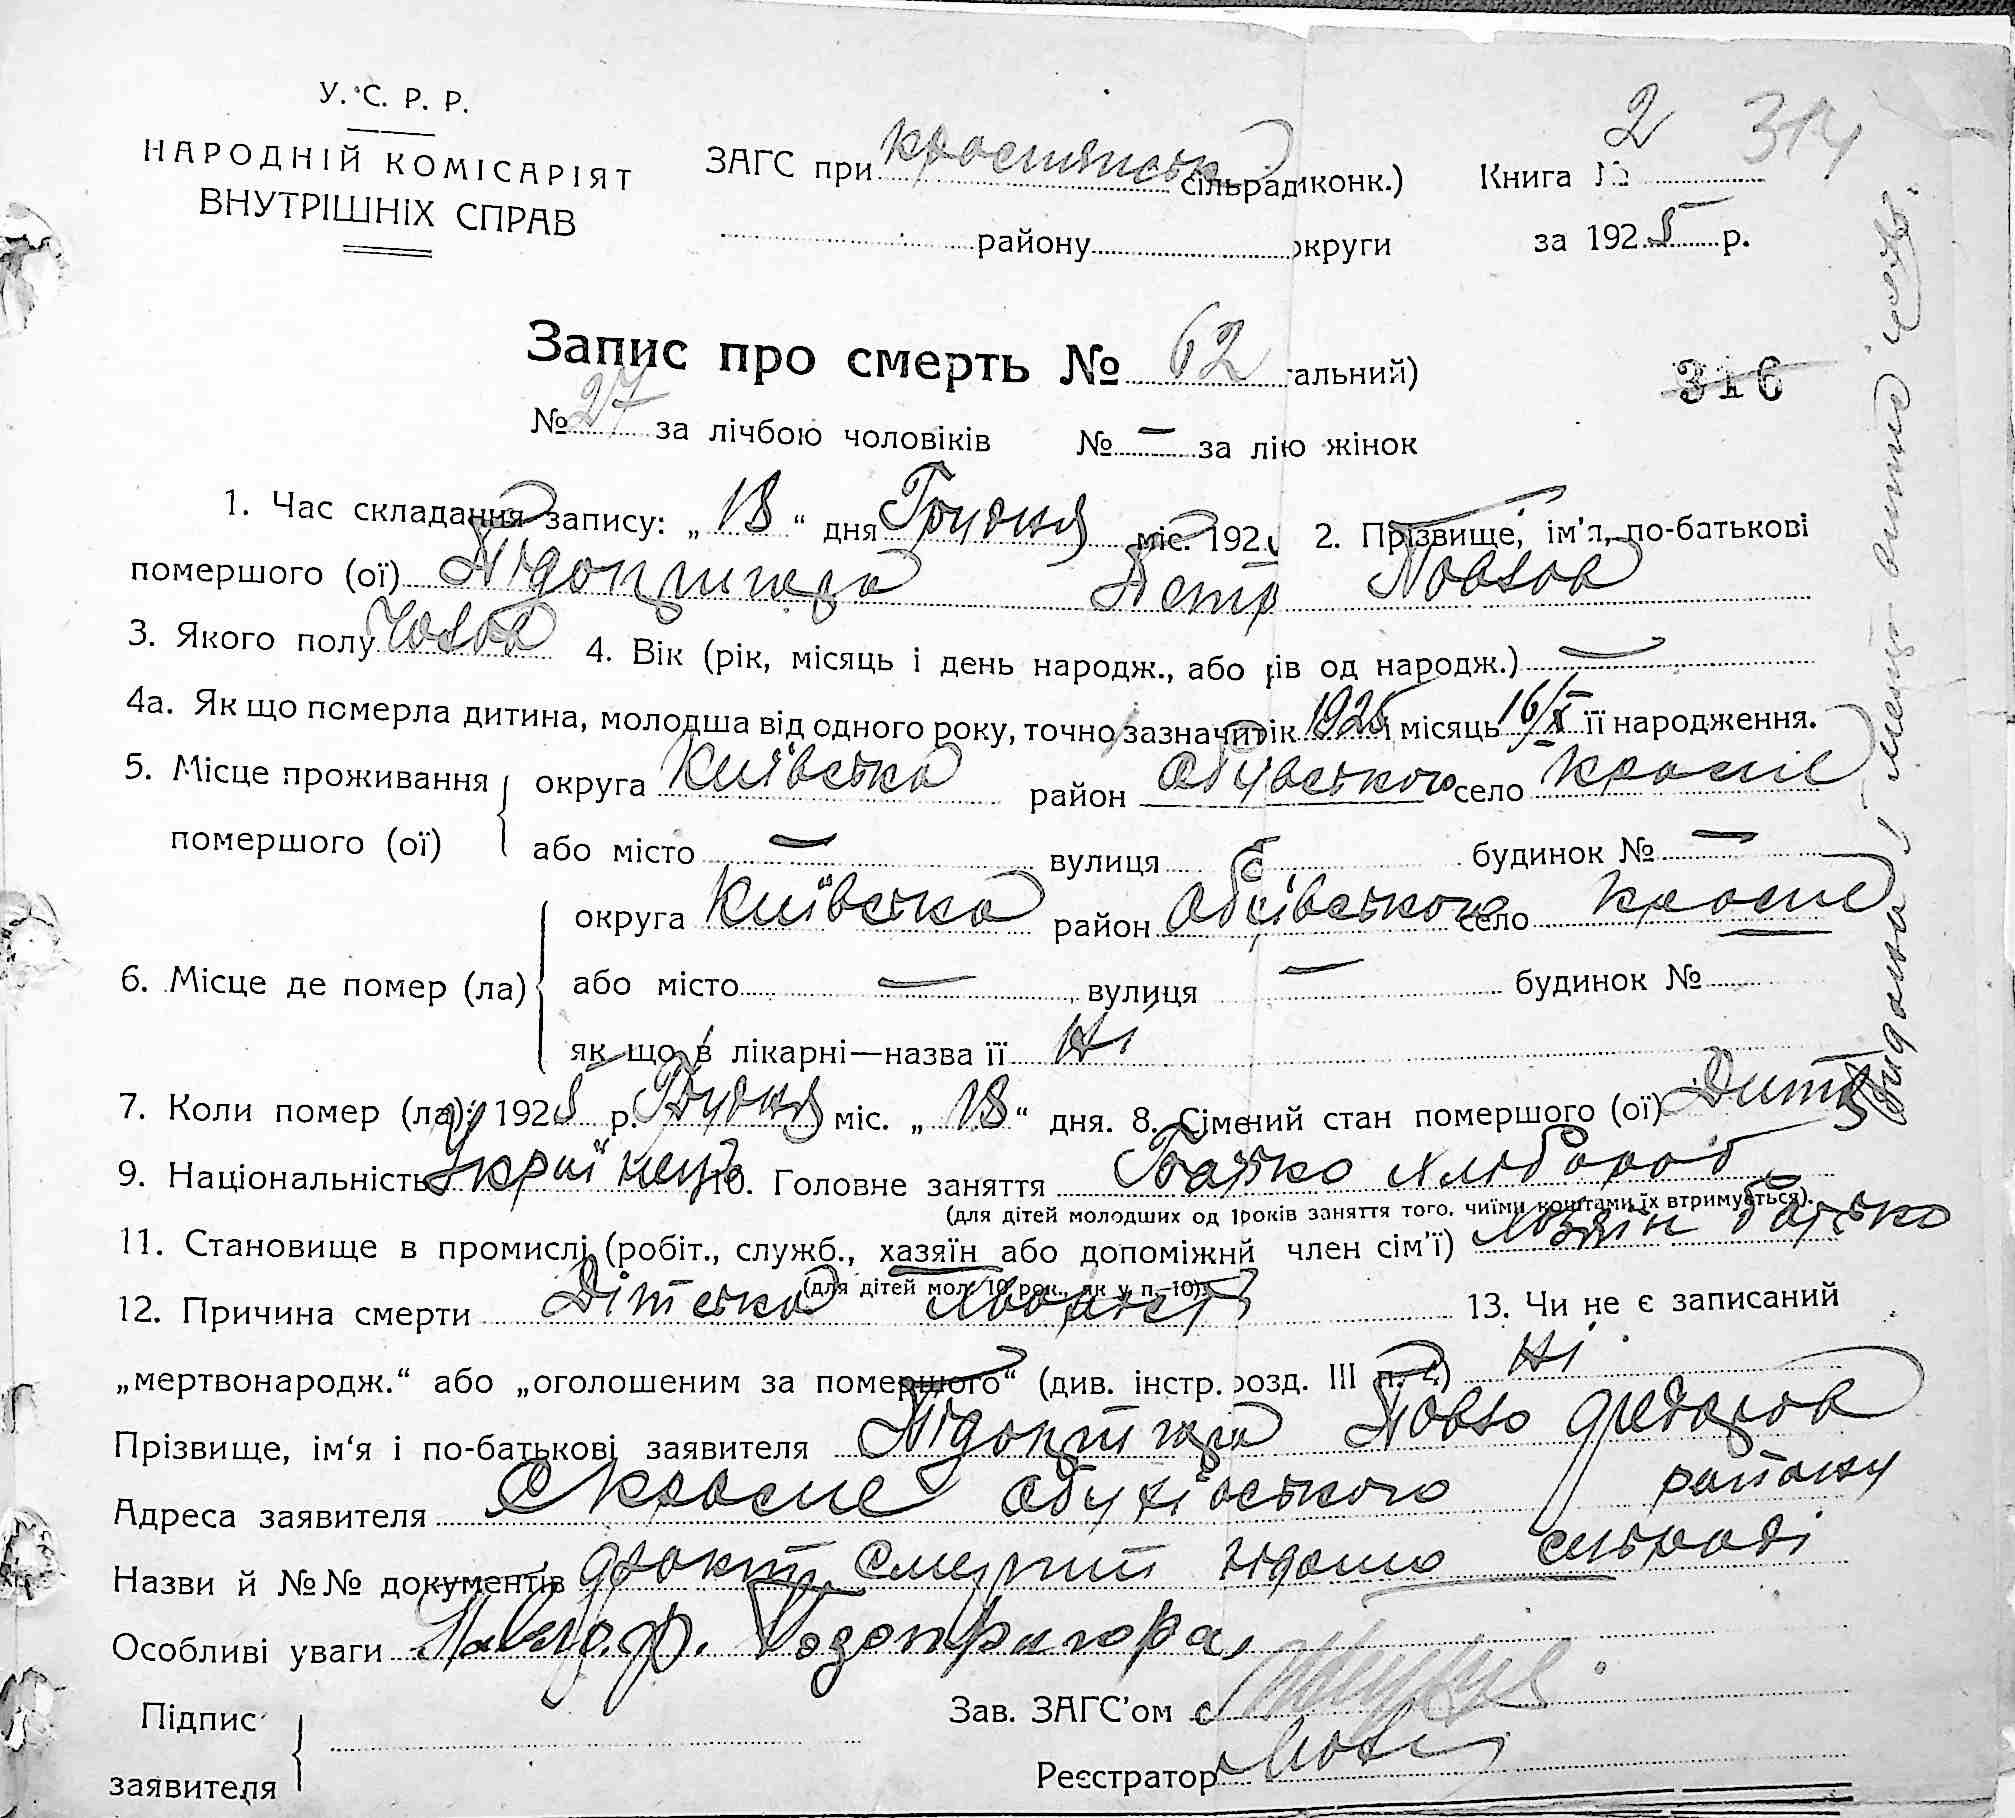 У. С. Р. Р.
НАРОДНІЙ КОМІСАРІЯТ
ВНУТРІШНІХ СПРАВ
ЗАГС при сільрадіконк.)
району округи
2 314
Книга №
за 1925 р.
Запис про смерть № 62 альний)
316
№ 27 за лічбою чоловіків № — за лію жінок
1. Час складання запису: „18“ дня Грудня міс. 192 2. Прізвище, ім'я, по-батькові
помершого (ої) Підопригора Петр Павлов
3. Якого полу Чолов 4. Вік (рік, місяць і день народж., або ів од народж.) —
4а. Як що померла дитина, молодша від одного року, точно зазначить ік 1925 місяць 16/X її народження.
5. Місце проживання округа Київська район село Красне
помершого (ої) або місто — вулиця будинок № —
округа Київська район Обухівського село Красне
6. Місце де помер (ла) або місто — вулиця — будинок №
як що в лікарні—назва її Ні
7. Коли помер (ла): 1925 р. Грудня міс. „18“ дня. 8. Сімений стан помершого (ої) Дитя
9. Національність Українець 10. Головне заняття Батько хлібороб
(для дітей молодших од 1років заняття того, чиїми коштами їх втримується).
11. Становище в промислі (робіт., служб., хазяїн або допоміжнй член сім'ї) Хозяїн батько
(для дітей мол. 10 рок., як у п. 10)
12. Причина смерти Дітська 13. Чи не є записаний
„мертвонародж.“ або „оголошеним за помершого“ (див. інстр. розд. III п. 4) Ні
Прізвище, ім'я і по-батькові заявителя Підопригора Павло Федоров
Адреса заявителя с Красне Обухівського району
Назви й №№ документів факт смерти відомо сільраді
Особливі уваги Павел. Ф. Подопригора
Підпис Зав. ЗАГС'ом
заявителя Реєстратор